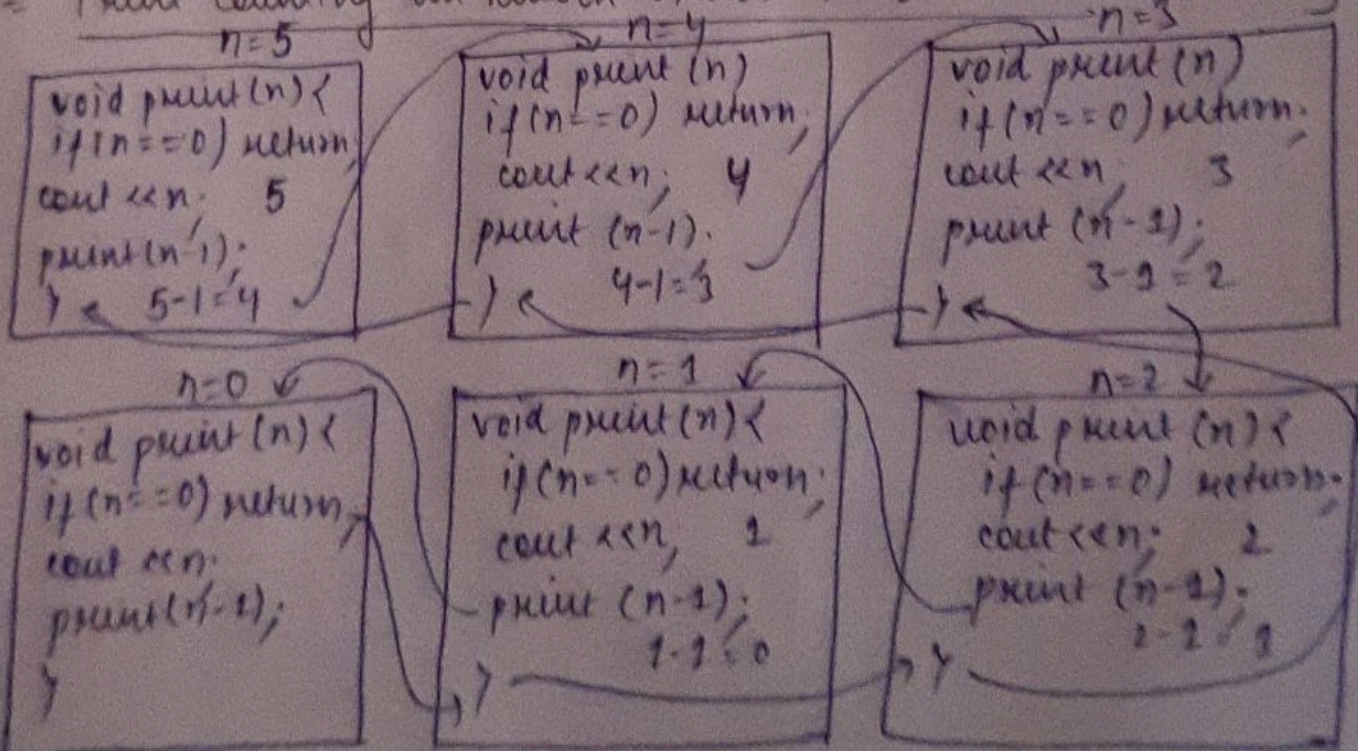 = Print counting
n=5
void print(n){
if(n==0) return;
cout<<n; 5
print(n-1);
5-1=4
}
n=4
void print (n)
if(n==0) return;
cout<<n; 4
print (n-1).
4-1=3
}
n=3
void print(n)
if(n==0) return;
cout<<n; 3
print (n-1);
3-1=2
}
n=0
void print(n){
if(n==0) return;
cout<<n.
print(n-1);
}
n=1
void print(n){
if(n==0) return;
cout<<n; 1
print (n-1);
1-1=0
}
n=2
void print (n){
if(n==0) return;
cout<<n; 2
print (n-1);
2-1=1
}